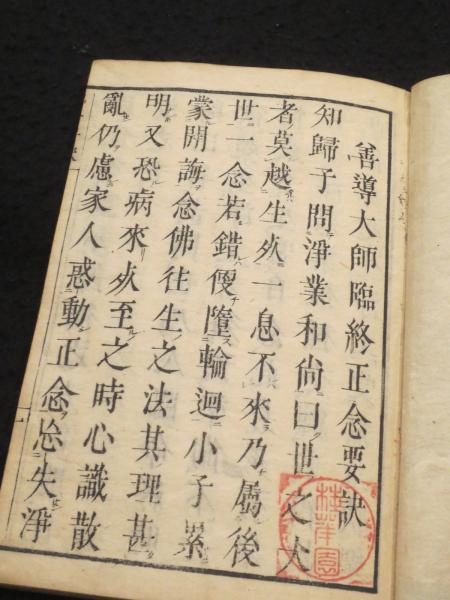 善導大師臨終正念要訣
知歸子問淨業和尚曰世之大
者莫越生死一息不來乃屬後
世一念若錯便墮輪迴小子累
蒙開誨念佛往生之法其理甚
明又恐病來死至之時心識散
亂仍慮家人惑動正念忘失淨
一